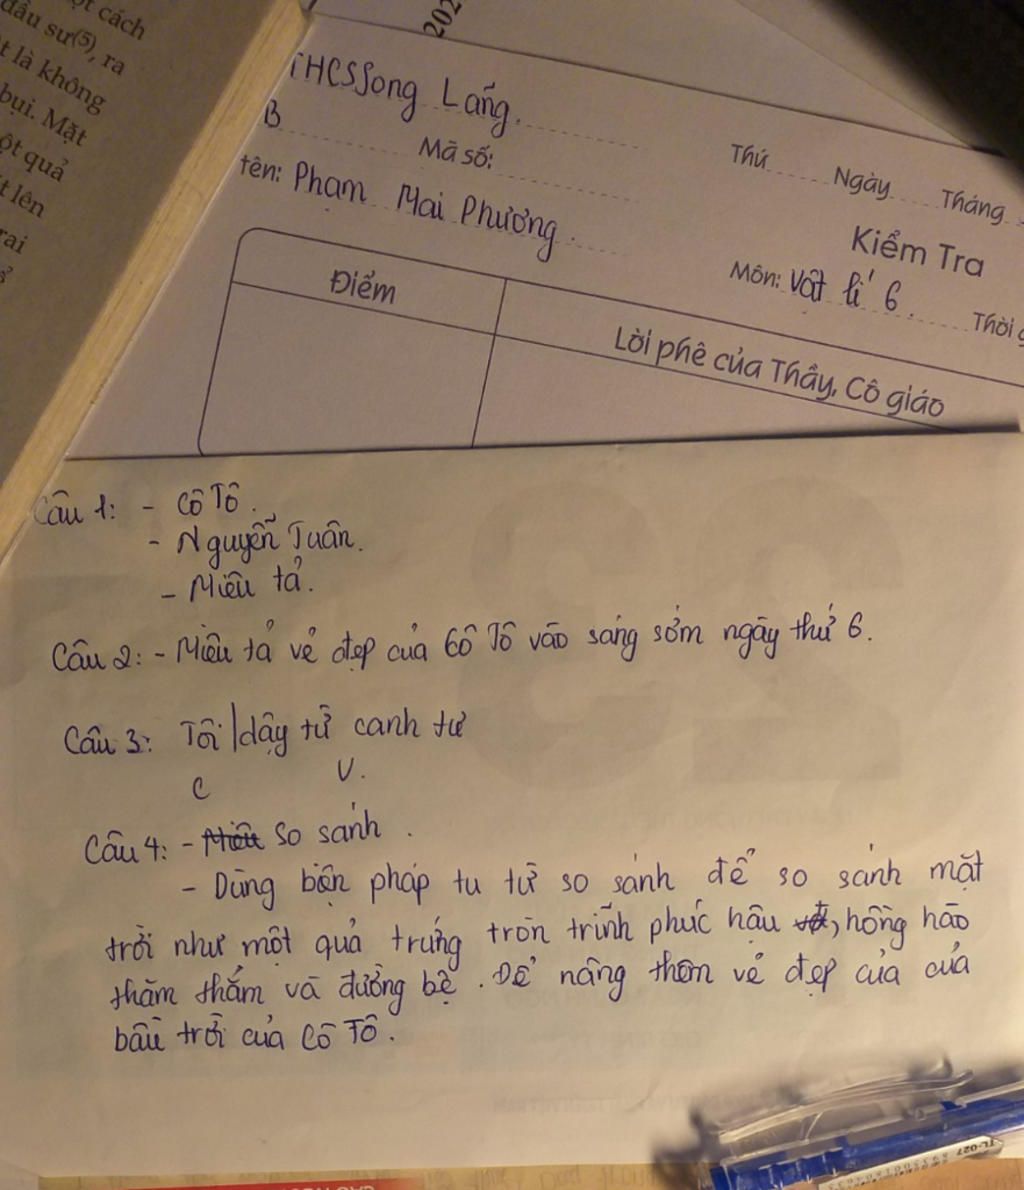 ột cách
dấu sư(5), ra
t là không
bụi. Mặt
ột quả
t lên
rai
202
THCS Song Lãng.
B
Mã số:
tên: Phạm Mai Phương.
Thứ Ngày Tháng
Kiểm Tra
Môn: Vật lí 6.
Thời g
Điểm
Lời phê của Thầy, Cô giáo
Câu 1: - Cô Tô.
- Nguyễn Tuân.
- Miêu tả.
Câu 2: - Miêu tả vẻ đẹp của Cô Tô vào sáng sớm ngày thứ 6.
Câu 3: Tôi | dậy từ canh tư
C V.
Câu 4: - Miêu so sánh.
- Dùng biện pháp tu từ so sánh để so sánh mặt
trời như một quả trứng tròn trĩnh phúc hậu , hồng hào
thăm thẳm và đường bệ. Để nâng thêm vẻ đẹp của của
bầu trời của Cô Tô.
TL-027